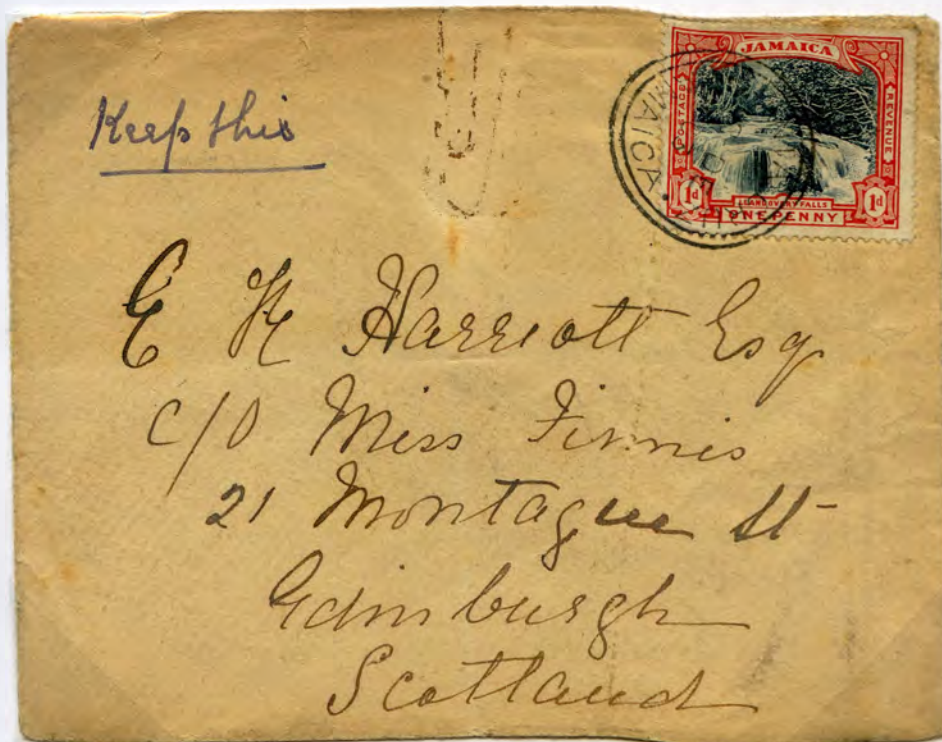 Keep this
JAMAICA
POSTAGE
REVENUE
1d
1d
LLANDOVERY FALLS
ONE PENNY
MAICA
E H Harriott Esq
c/o Miss Finnis
21 Montague St
Edinburgh
Scotland